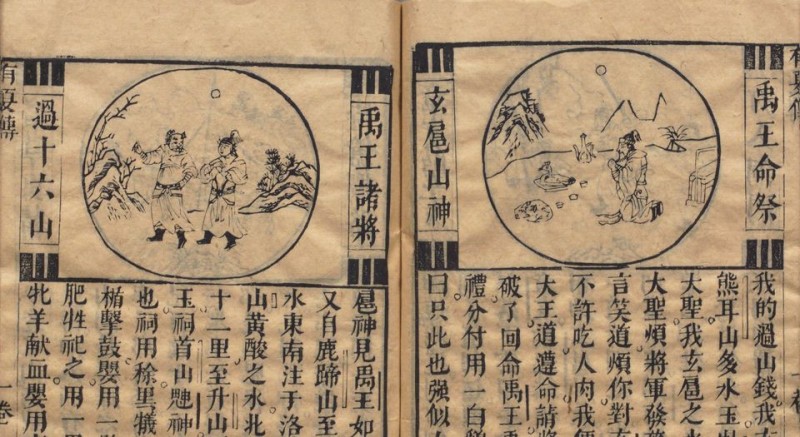 有夏傳
禹王命祭
玄扈山神
我的過山錢我
熊耳山多水玉出
大聖我玄扈之水
大聖煩將軍發
言笑道煩你對玄
不許吃人肉我便
大王道遵命請將
破了回命禹王
禮分付用一白
曰只此也強似人
一卷
禹王諸將
過十六山
扈神見禹王如
又自鹿蹄山至
水東南注于洛
山黃酸之水北
十二里至升山
玉祠首山䰠神
也祠用稌黑犧
楯擊鼓嬰用一
肥牲祀之用一
牝羊献血嬰用
有夏傳
一卷